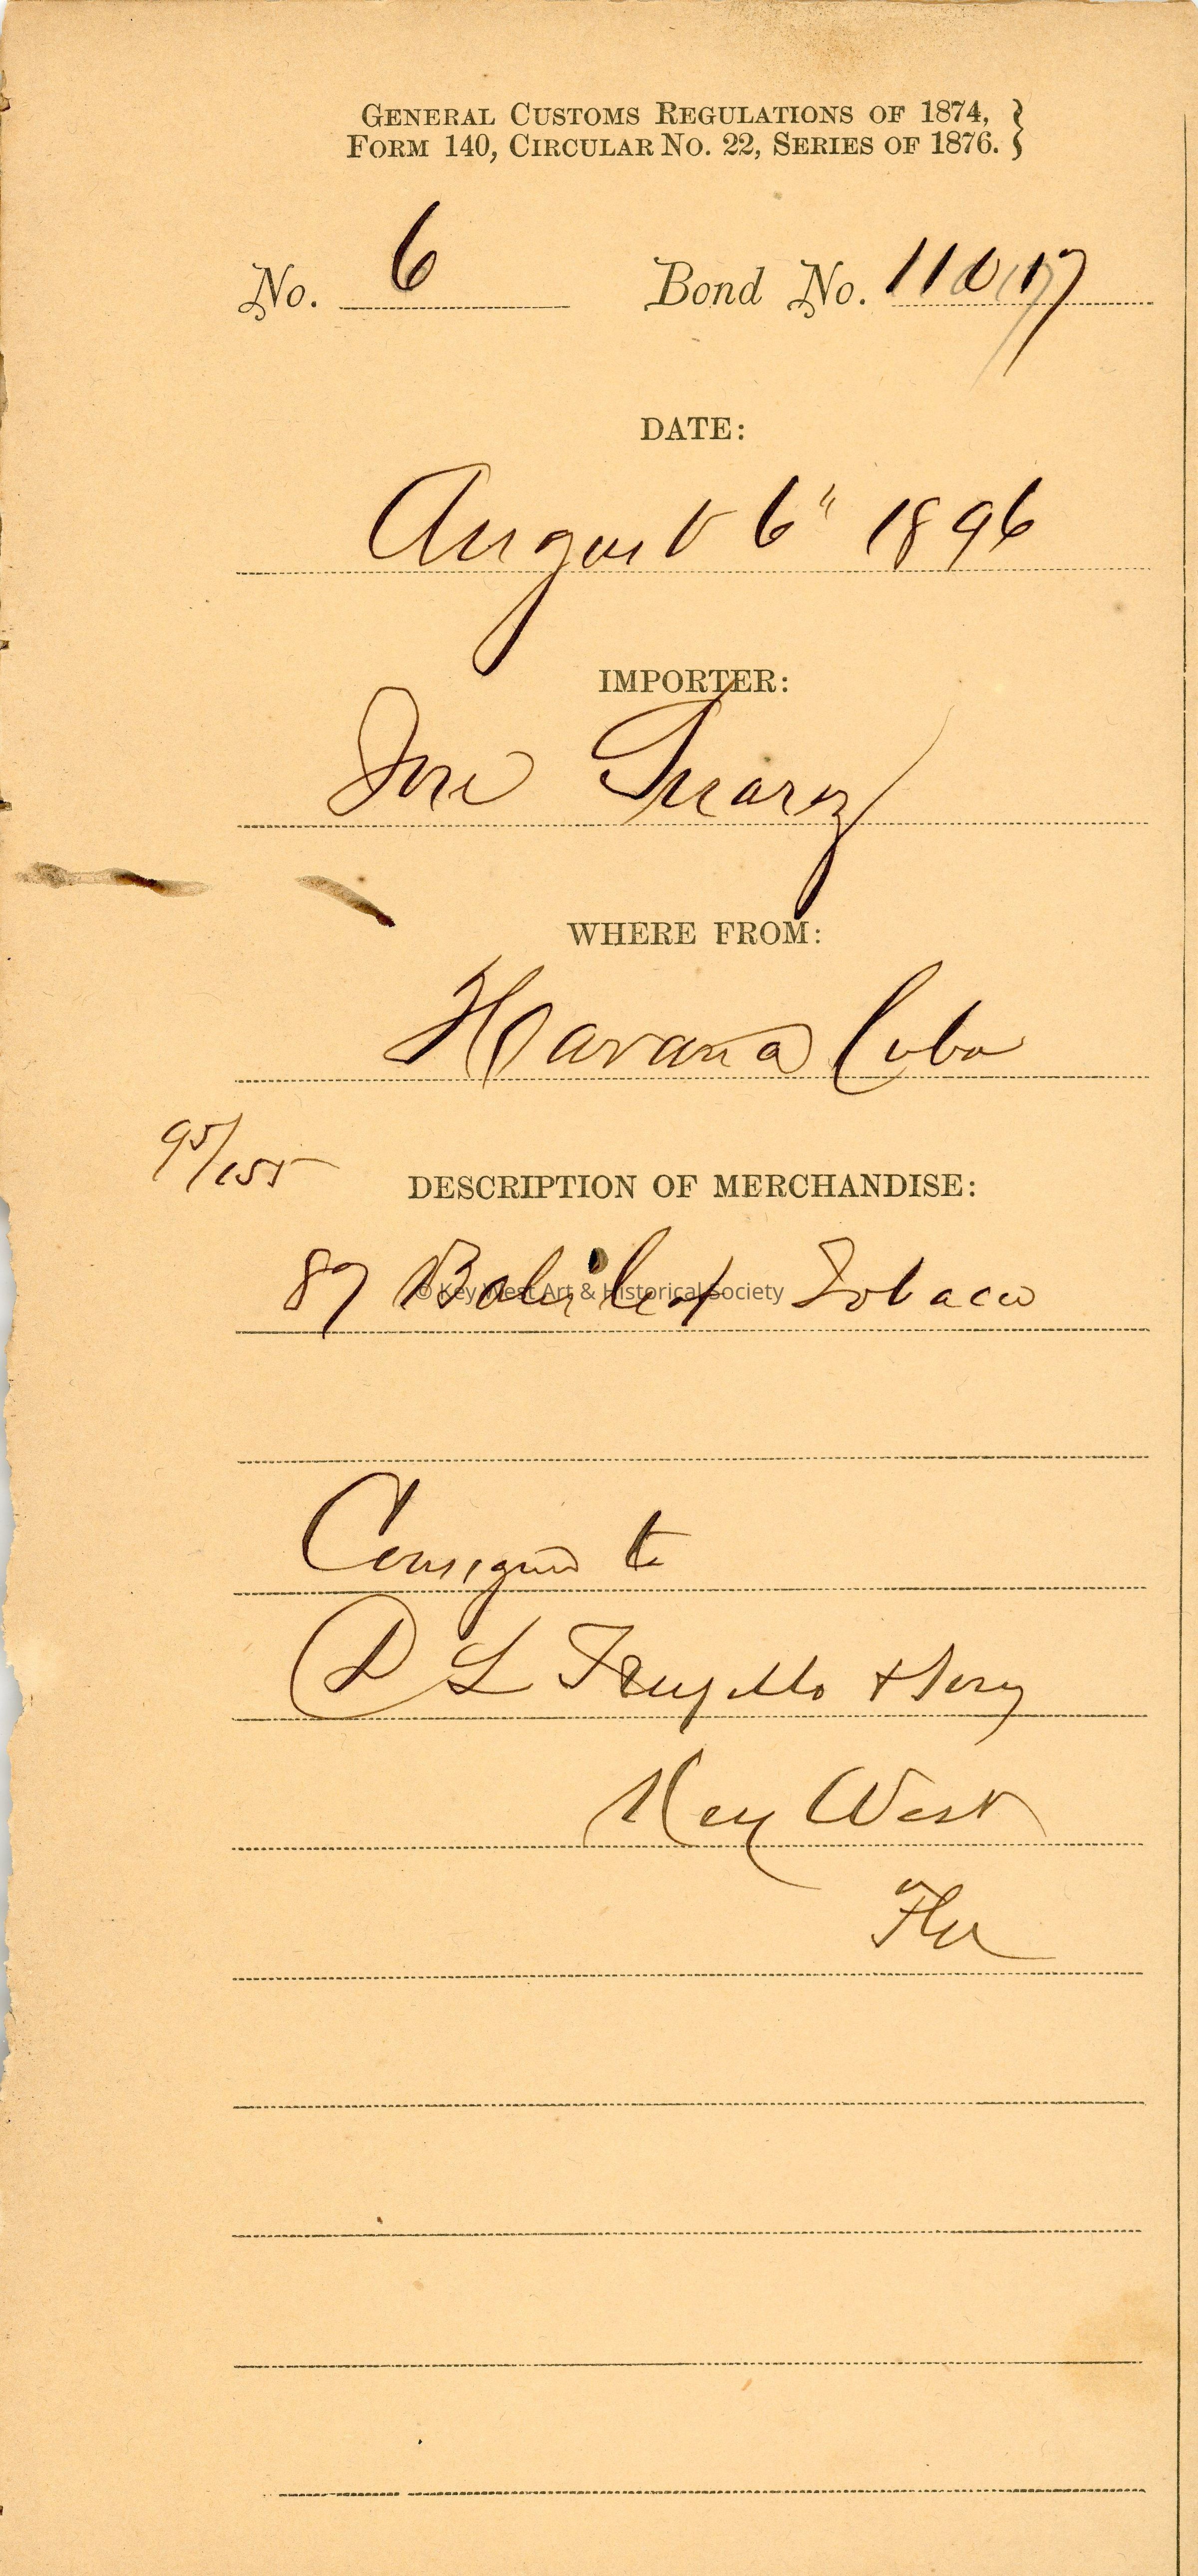 GENERAL CUSTOMS REGULATIONS OF 1874, }
FORM 140, CIRCULAR NO. 22, SERIES OF 1876. }
No. 6 Bond No. 11017
DATE:
August 6" 1896
IMPORTER:
Jose Suarez
WHERE FROM:
Havana Cuba
95/155
DESCRIPTION OF MERCHANDISE:
87 Bales Leaf Tobacco
© Key West Art & Historical Society
Consigned to
D L Trujillo & Sons
Key West
Fla